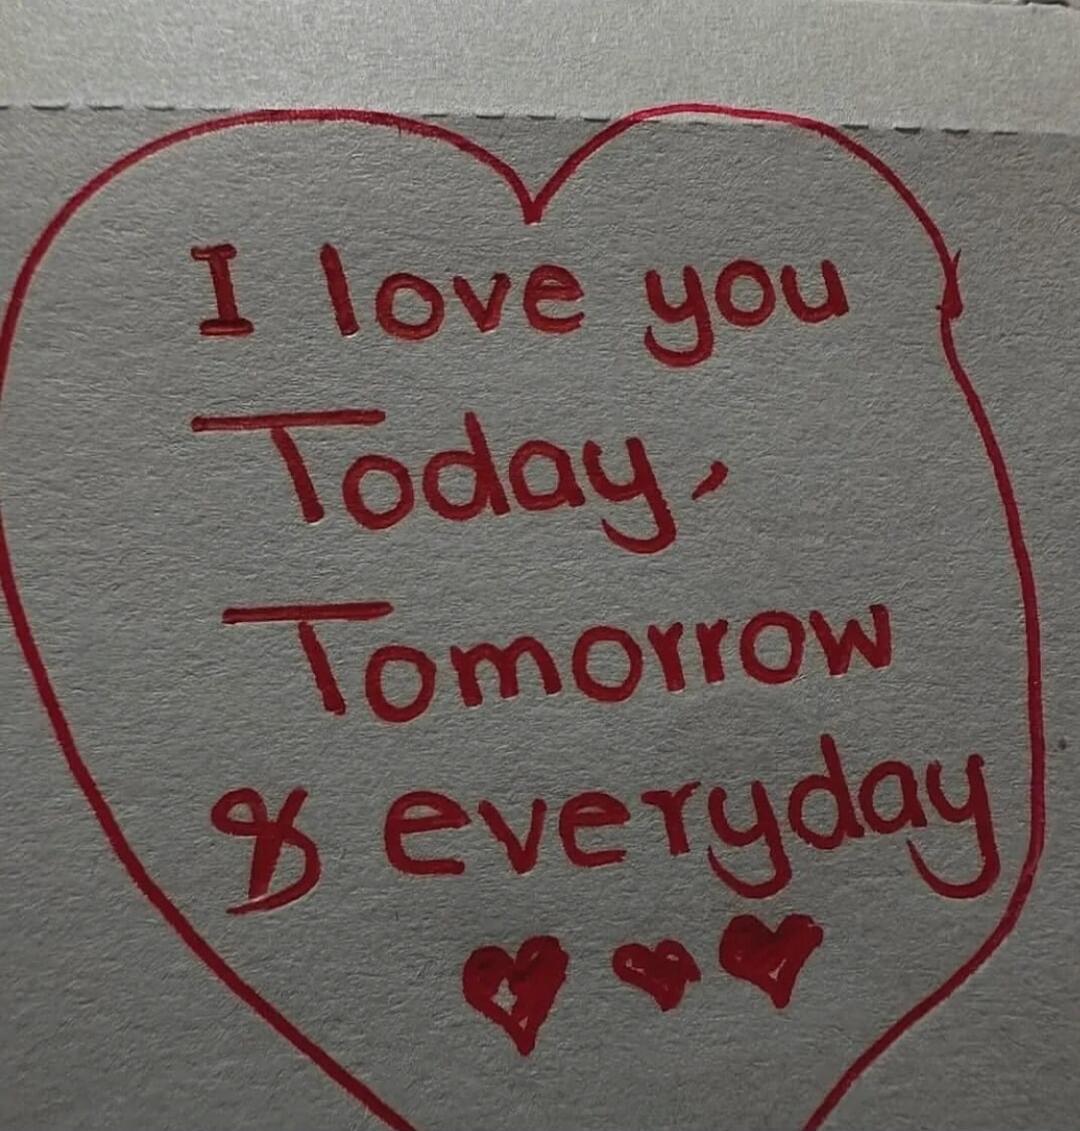 I love you
Today,
Tomorrow
& everyday